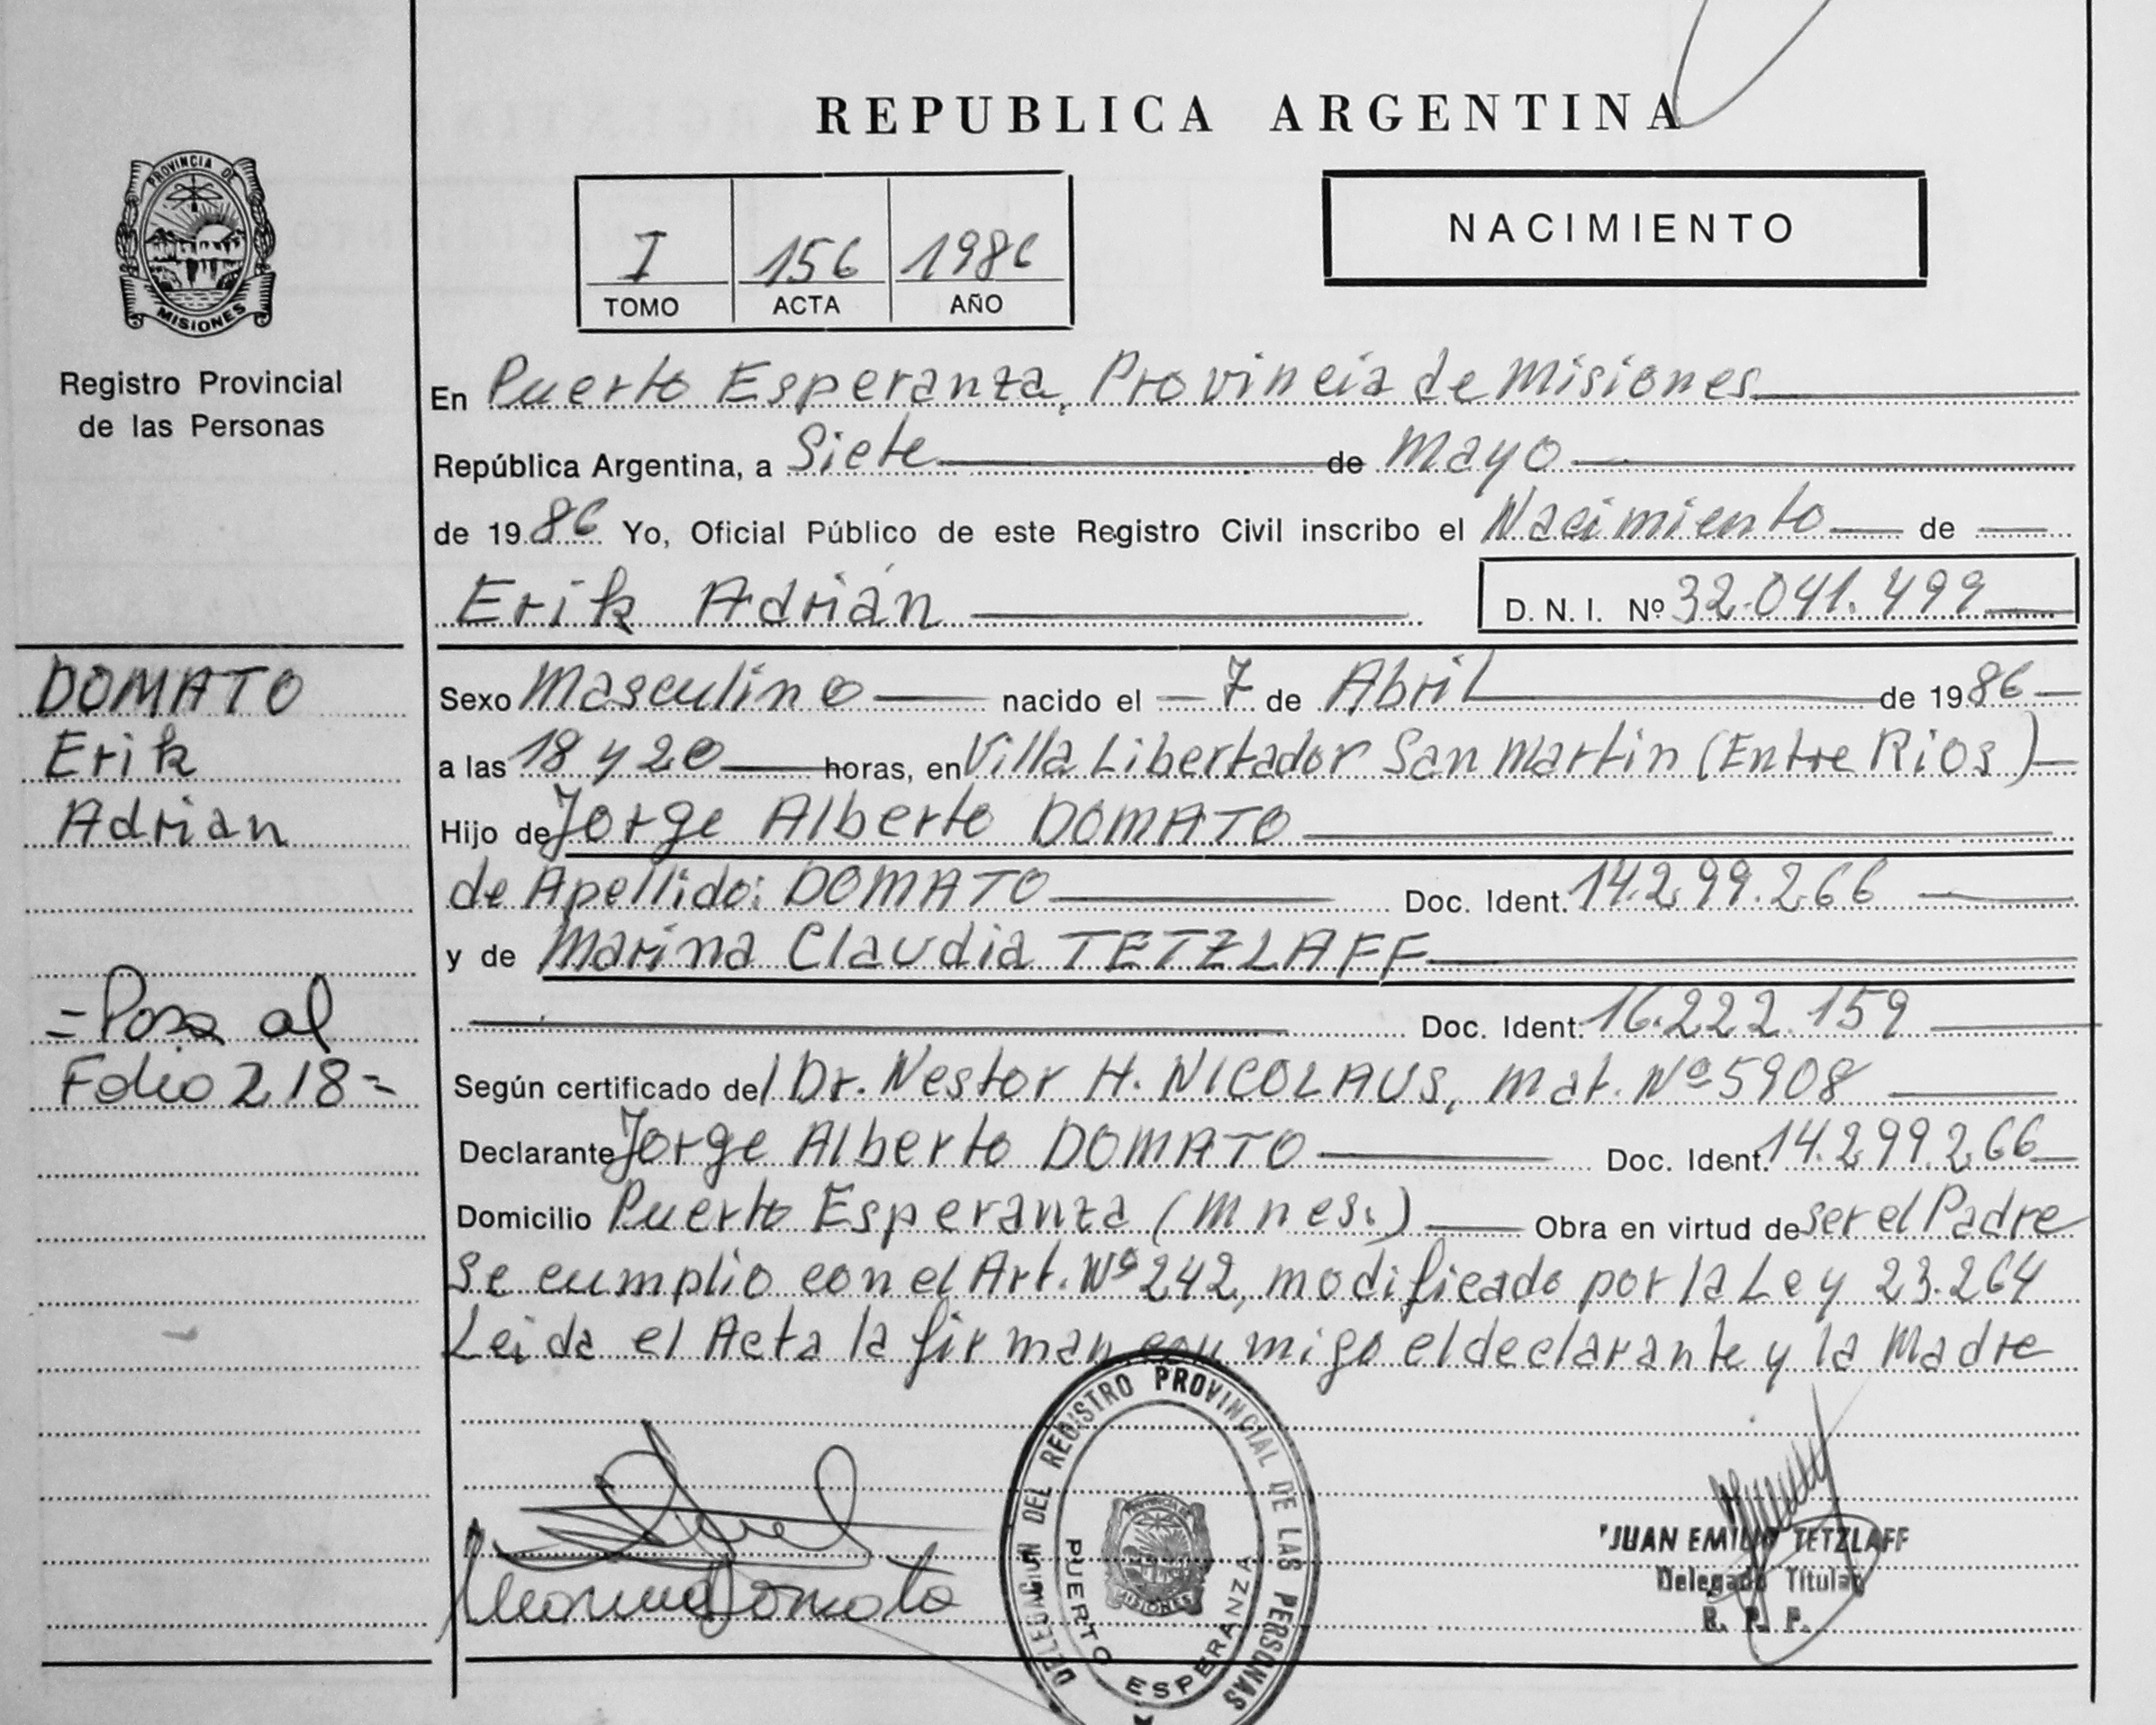 REPUBLICA ARGENTINA
PROVINCIA DE
MISIONES
Registro Provincial
de las Personas
I 156 1986
TOMO ACTA AÑO
NACIMIENTO
En Puerto Esperanza, Provincia de Misiones
República Argentina, a Siete de Mayo
de 1986 Yo, Oficial Público de este Registro Civil inscribo el Nacimiento de
Erik Adrián
D. N. I. Nº 32.041.499
DOMATO
Erik
Adrian
=Pasa al
Folio 218=
Sexo Masculino nacido el 7 de Abril de 1986
a las 18 y 20 horas, en Villa Libertador San Martin (Entre Rios)
Hijo de Jorge Alberto DOMATO
de Apellido: DOMATO Doc. Ident. 14.299.266
y de Marina Claudia TETZLAFF
Doc. Ident: 16.222.159
Según certificado del Dr. Nestor H. NICOLAUS, mat. Nº 5908
Declarante Jorge Alberto DOMATO Doc. Ident. 14.299.266
Domicilio Puerto Esperanza (Mnes.) Obra en virtud de ser el Padre
Se cumplio con el Art. Nº 242, modificado por la Ley 23.264
Leida el Acta la firman conmigo el declarante y la Madre
Marina Domato
DELEGACION DEL REGISTRO PROVINCIAL DE LAS PERSONAS
PUERTO ESPERANZA
MISIONES
JUAN EMILIO TETZLAFF
Delegado Titular
R. P. P.